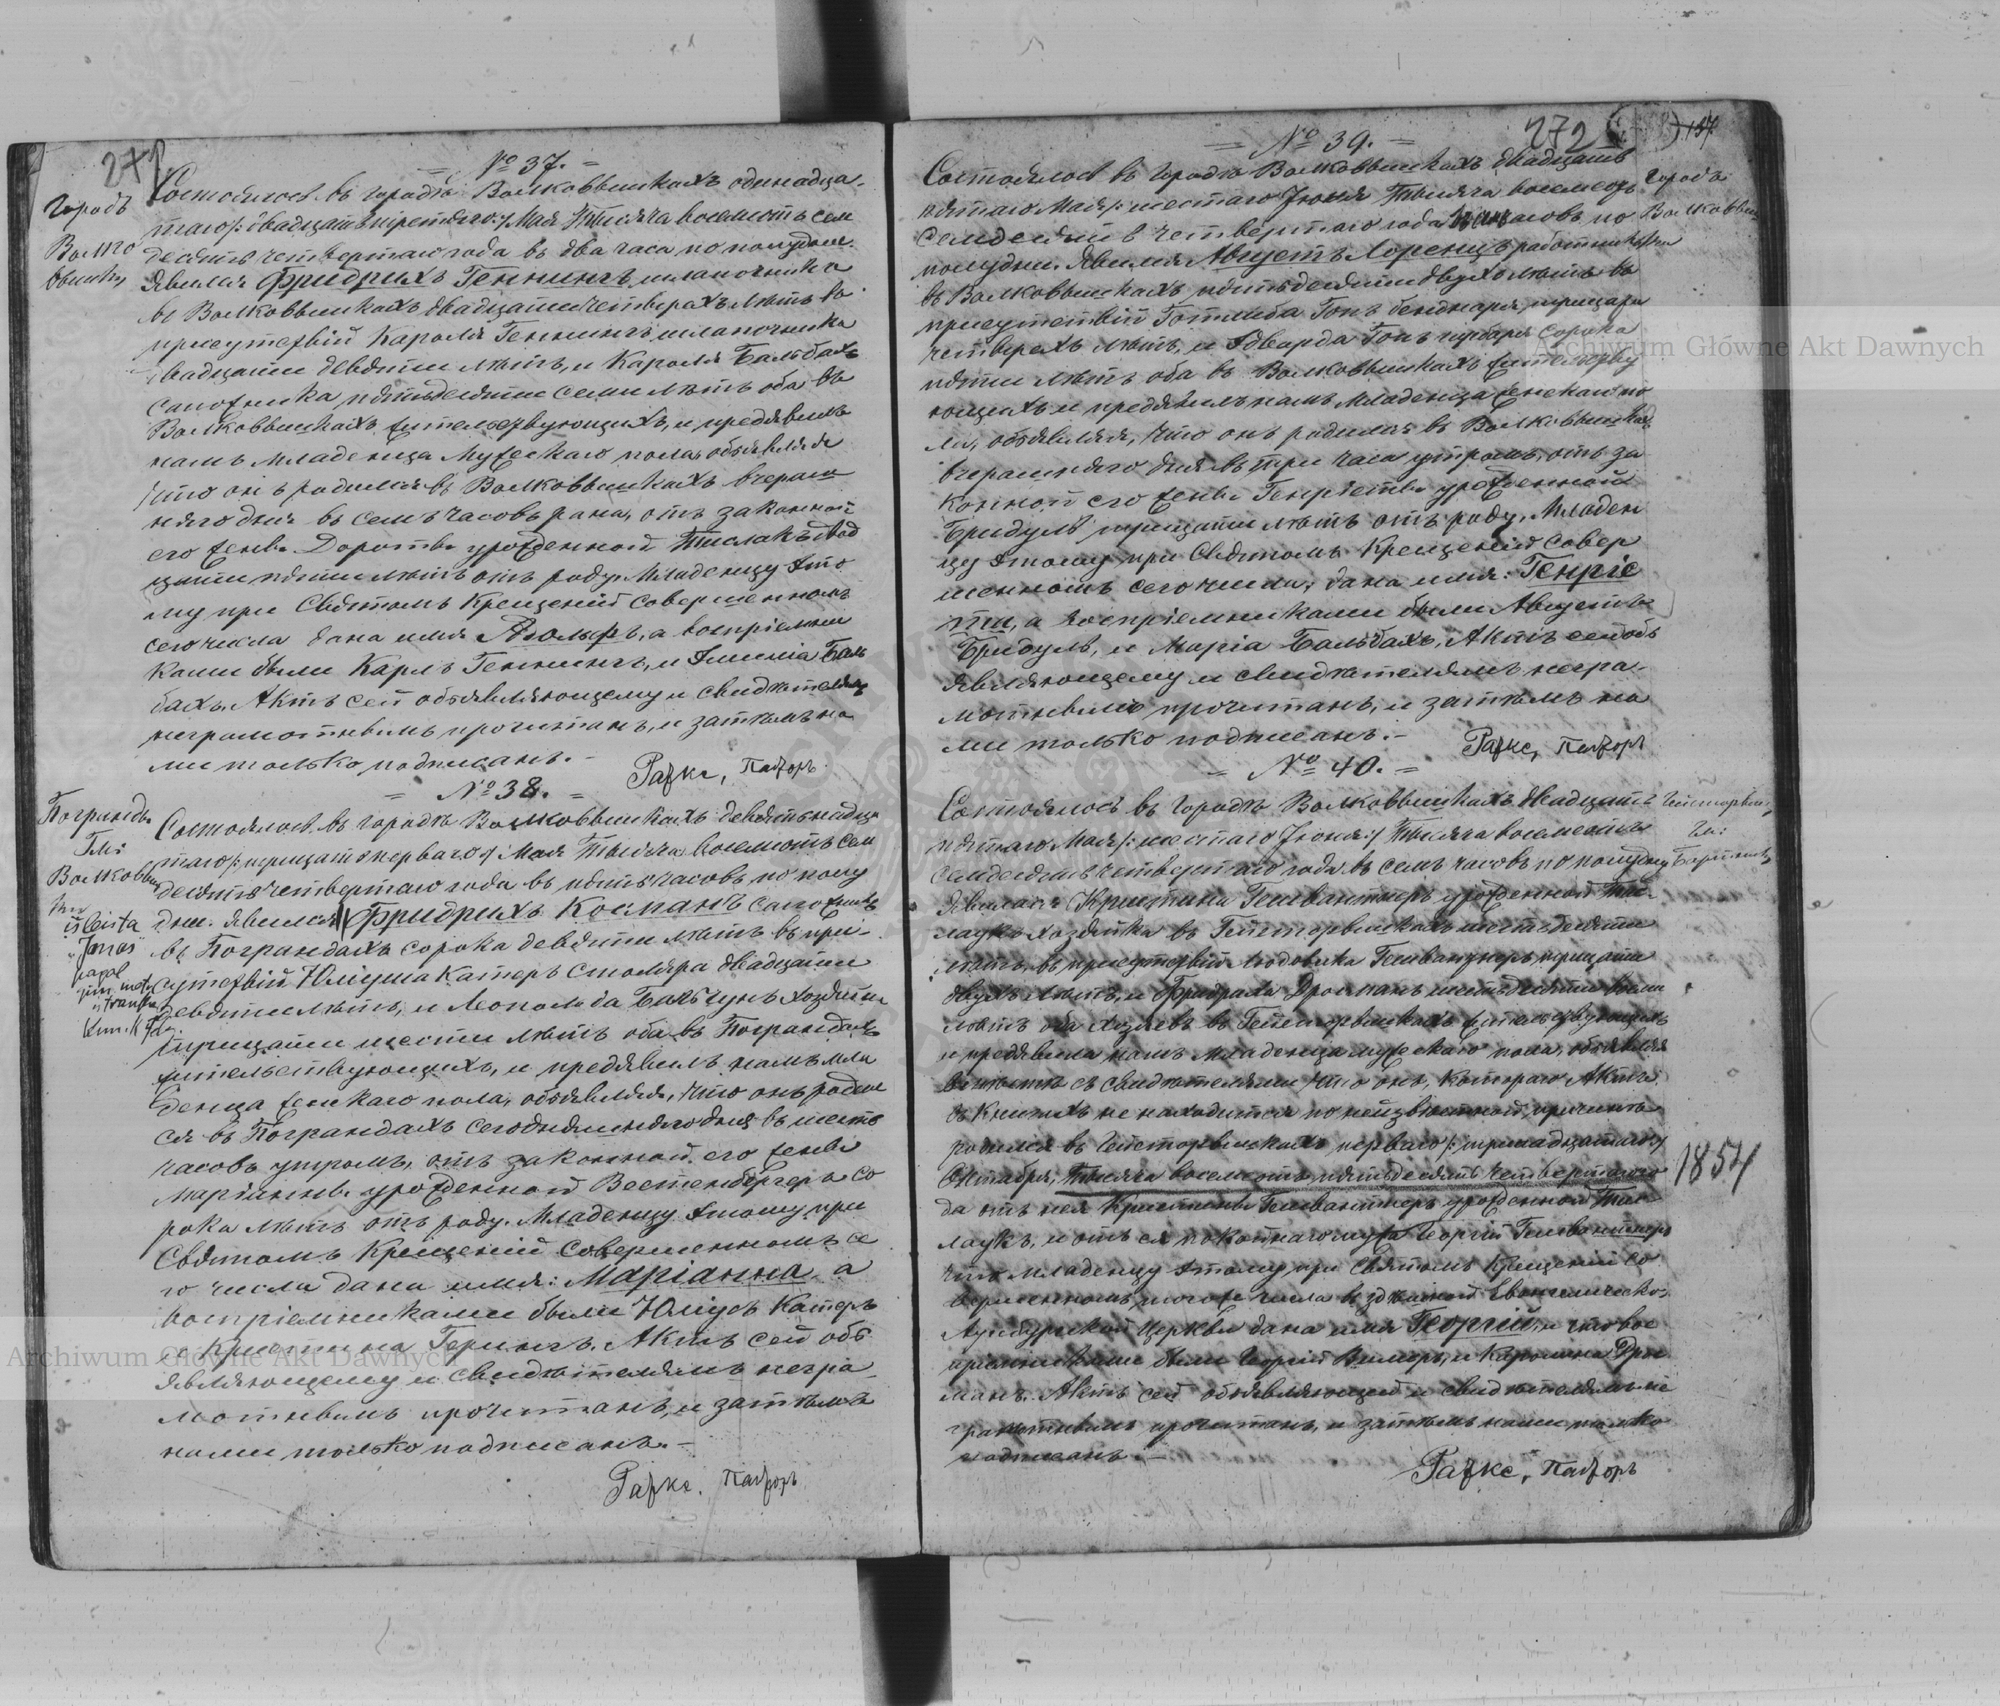 271
№ 37.
Городъ
Волко
вышки
Состоялось въ городѣ Волковышкахъ одинадца-
таго /: двадцать третьяго :/ Мая Тысяча восемсотъ сем
десятъ четвертаго года въ два часа по полудни.
Явился Фридрихъ Геннингъ шапочникъ
въ Волковышкахъ двадцати четырехъ лѣтъ въ
присутствіи Кароля Геннингъ шапочника
двадцати девяти лѣтъ, и Кароля Бальбахъ
сапожника пятьдесяти семи лѣтъ оба въ
Волковышкахъ жительствующихъ, и предявилъ
намъ младенца мужескаго пола, объявляя
что онъ родился въ Волковышкахъ вчераш
няго дня въ семь часовъ рана, отъ законной
его жены Доротеи урожденной двад
цати пяти лѣтъ отъ роду. Младенцу это
му при Святомъ Крещеніи совершенномъ
сего числа дана имя Адольфъ, а воспріемни
ками были Карлъ Геннингъ, и Эмилія Баль
бахъ. Актъ сей объявляющему и свидѣтелямъ
неграмотнымъ прочитанъ, и затѣмъ на
ми только подписанъ. –
Пасторъ
№ 38.
Погранды
Гм:
Волковыш
ки
išleista
"Jonas"
pagal
jun. metr
ištrauką
Состоялось въ городѣ Волковышкахъ девятьнадца
таго /: тридцать перваго :/ Мая Тысяча восемсотъ сем
десятъ четвертаго года въ пять часовъ по полу
дни. Явился Фридрихъ Косманъ сапожникъ
въ Пограндахъ сорока девяти лѣтъ въ при-
сутствіи Юліуша Катеръ столяра двадцати
девяти лѣтъ, и Леопольда Бальчунъ хозяина
тридцати шести лѣтъ оба въ Пограндахъ
жительствующихъ, и предявилъ намъ мла
денца женскаго пола, объявляя, что онъ родил
ся въ Пограндахъ сегодняшняго дня въ шесть
часовъ утромъ, отъ законной его жены
Маріанны урожденной Вестенбергеръ со
рока лѣтъ отъ роду. Младенцу этому при
Святомъ Крещеніи совершенномъ се
го числа дана имя: Маріанна, а
воспріемниками были Юліусъ Катеръ
и Кристина Герингъ. Актъ сей объ
являющему и свидѣтелямъ негра
мотнымъ прочитанъ, и затѣмъ
нами только подписанъ. –
Пасторъ
272
137
№ 39.
Городъ
Волковыш
ки
Состоялось въ городѣ Волковышкахъ двадцать
пятаго Мая /: шестаго Іюня Тысяча восемсотъ
семдесятъ четвертаго года часовъ по
полудни. Явился Августъ Лоренцъ работникъ
въ Волковышкахъ пятьдесяти двухъ лѣтъ въ
присутствіи Готлиба Гопъ бендкаря тридцати
четырехъ лѣтъ, и Эдварда Гопъ сорока
пяти лѣтъ оба въ Волковышкахъ жительству
ющихъ и предявилъ намъ младенца женскаго по
ла, объявляя, что онъ родился въ Волковышкахъ
вчерашняго дня въ три часа утромъ, отъ за
конной его жены Генріеты урожденной
Бридуль тридцати лѣтъ отъ роду. Младен
цу этому при Святомъ Крещеніи совер
шенномъ сего числа, дана имя: Генріе
та, а воспріемниками были Августъ
Бридуль, и Марія Бальбахъ. Актъ сей объ
являющему и свидѣтелямъ негра-
мотнымъ прочитанъ, и затѣмъ на
ми только подписанъ. –
Пасторъ
№ 40.
Гм:
Состоялось въ городѣ Волковышкахъ двадцать
пятаго Мая /: шестаго Іюня :/ Тысяча восемсотъ
семдесятъ четвертаго года въ семь часовъ по полудни
Явилась Кристина урожденной
хозяйка въ шестидесяти
лѣтъ, въ присутствіи Людовика тридцати
двухъ лѣтъ, и Фридриха Дросманъ шестьдесяти восьми
лѣтъ оба хозяевъ въ жительствующихъ
и предявила намъ младенца мужескаго пола, объявляя
вмѣстѣ съ свидѣтелями что онъ, котораго Актъ
въ книгахъ не находится по неизвѣстной причинѣ
родился въ перваго /: тринадцатаго :/
Октября, Тысяча восемсотъ пятьдесятъ четвертаго го
1854
да отъ нея Кристины урожденной
и отъ ея покойнаго мужа Георгія
что младенцу этому при Святомъ Крещеніи со
вершенномъ того же числа въ здѣшней Евангелическо-
Аугсбургской Церкви дана имя Георгій, и что вос
пріемниками были Георгій и Каролина Дрос
манъ. Актъ сей объявляющей и свидѣтелямъ не
грамотнымъ прочитанъ, и затѣмъ нами только
подписанъ. –
Пасторъ
Archiwum Główne Akt Dawnych
Archiwum Główne Akt Dawnych